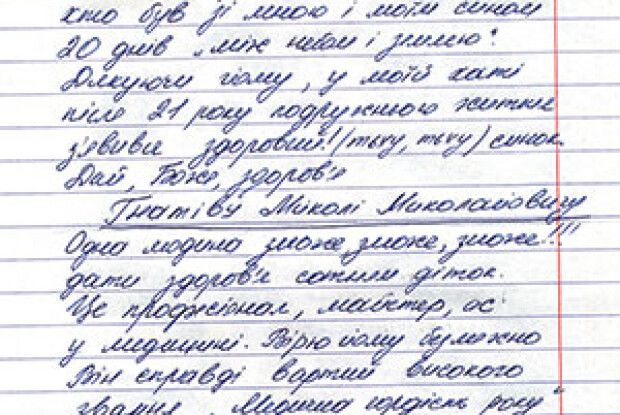 хто був зі мною і моїм сином
20 днів „між небом і землею".
Дякуючи йому, у моїй хаті
після 21 року подружнього життя
з'явився здоровий! (тьху, тьху) синок.
Дай, Боже, здоров'я
Гнатіву Миколі Миколайовичу
Одна людина зможе, зможе, зможе!!!
дати здоров'я сотням діток.
Це професіонал, майстер, ас
у медицині. Вірю йому безмежно
Він справді вартий високого
звання „Медична гордість року"